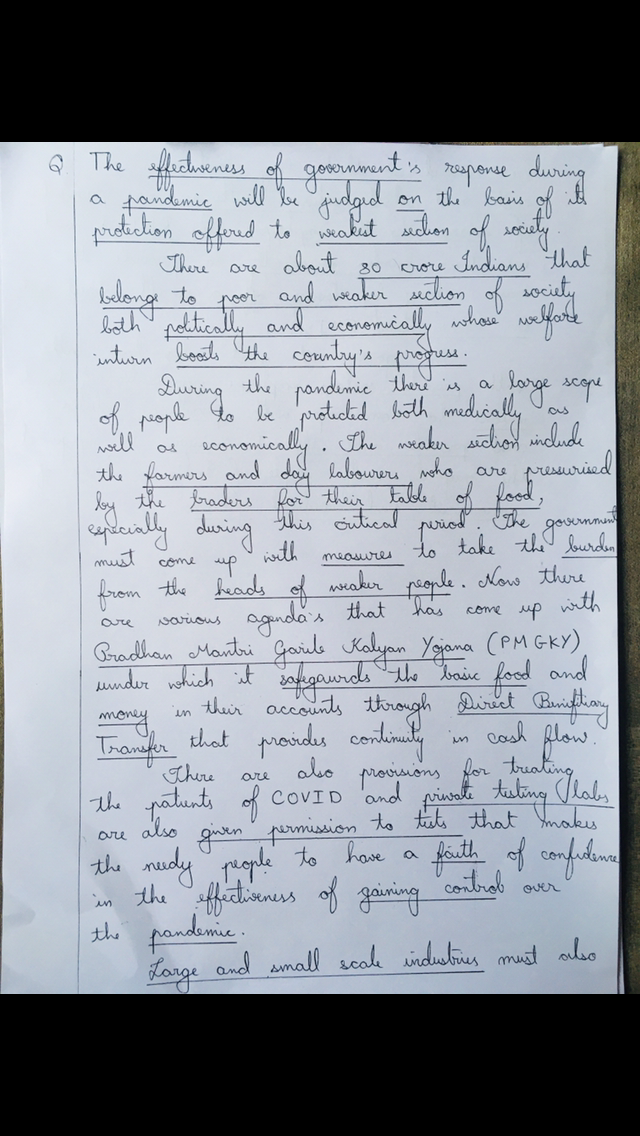 Q The effectiveness of government's response during
a pandemic will be judged on the basis of its
protection offered to weakest section of society.
There are about 80 crore Indians that
belongs to poor and weaker section of society
both politically and economically whose welfare
inturn boosts the country's progress.
During the pandemic there is a large scope
of people to be protected both medically as
well as economically. The weaker section include
the farmers and day labourers who are pressurised
by the traders for their table of food,
especially during this critical period. The government
must come up with measures to take the burden
from the heads of weaker people. Now there
are various agenda's that has come up with
Pradhan Mantri Garib Kalyan Yojana (PMGKY)
under which it safegaurds the basic food and
money in their accounts through Direct Benifitiary
Transfer that provides continuity in cash flow.
There are also provisions for treating
the patients of COVID and private testing labs
are also given permission to tests that makes
the needy people to have a faith of confidence
in the effectiveness of gaining control over
the pandemic.
Large and small scale industries must also